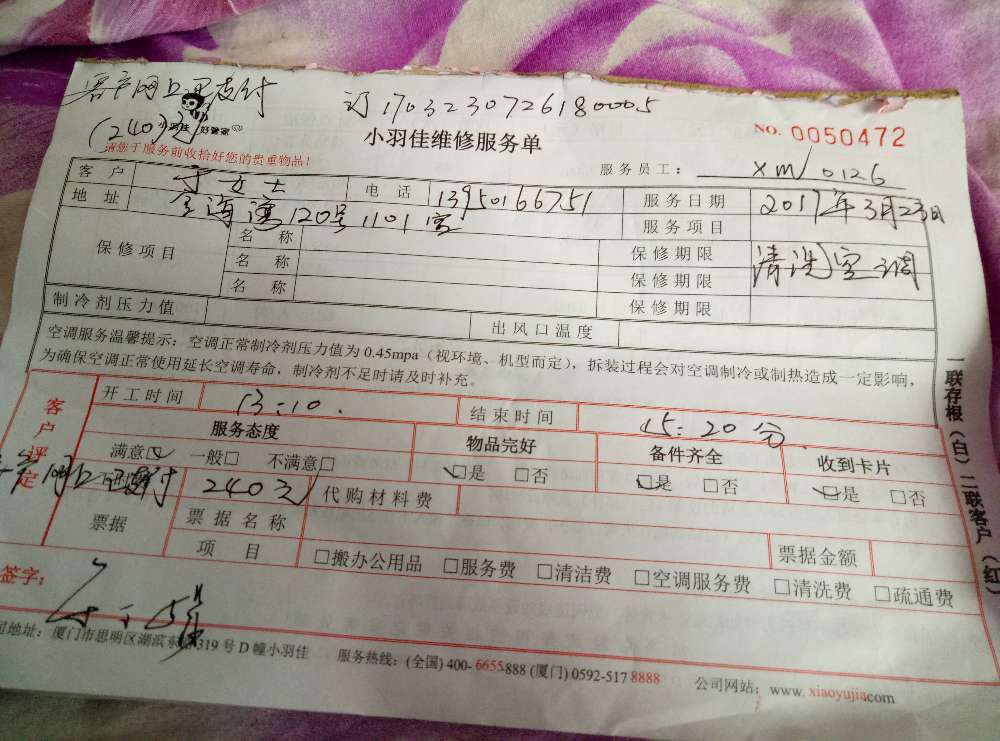 客户网上已支付 订170323072618 0005
(240元) 小羽佳 好管家
小羽佳维修服务单 NO. 0050472
请您于服务前收拾好您的贵重物品! 服务员工: XM/0126
客户 于女士 电话 13950166751 服务日期 2017年3月23日
地址 金海湾120号1101室 服务项目 清洗空调
保修项目 名称 保修期限
名称 保修期限
名称 保修期限
制冷剂压力值 出风口温度
空调服务温馨提示:空调正常制冷剂压力值为0.45mpa(视环境、机型而定),拆装过程会对空调制冷或制热造成一定影响,
为确保空调正常使用延长空调寿命,制冷剂不足时请及时补充。
客户评定 开工时间 13:10. 结束时间 15:20分
服务态度 物品完好 备件齐全 收到卡片
满意☑ 一般□ 不满意□ ☑是 □否 ☑是 □否 ☑是 □否
客户网上已支付 240元 代购材料费
票据 票据名称 票据金额
项目 □搬办公用品 □服务费 □清洁费 □空调服务费 □清洗费 □疏通费
签字:
司地址:厦门市思明区湖滨东路319号D幢小羽佳 服务热线:(全国) 400-6655888 (厦门) 0592-5178888 公司网站:www.xiaoyujia.com
一联存根(白)二联客户(红)